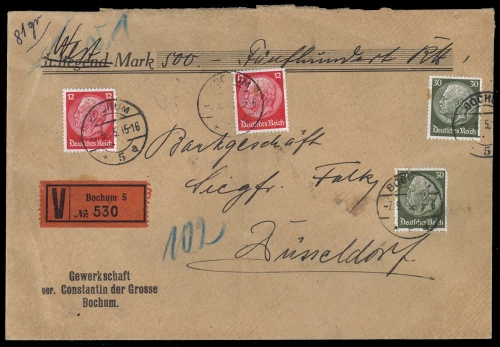 81 gr
Wert
Beiliegend Mark 500.- Fünfhundert Rtk.
12 12
Deutsches Reich
12
Deutsches Reich
30 30
Deutsches Reich
BOCHUM
15-16
5 a
BOCHUM
BOCHUM
5
Bankgeschäft
Siegfr. Falk,
Düsseldorf.
30
Deutsches Reich
V Bochum 5
№ 530
102
Gewerkschaft
ver. Constantin der Grosse
Bochum.